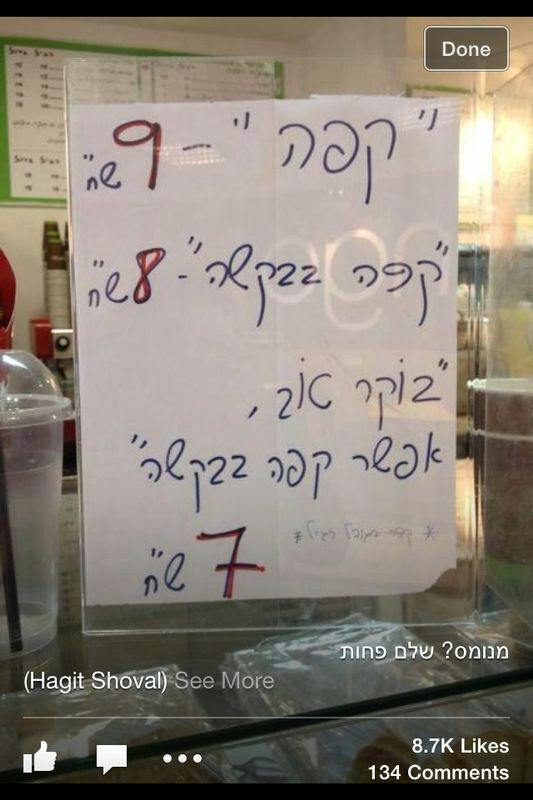 Done
"קפה" - 9 ש"ח
"קפה בבקשה" - 8 ש"ח
"בוקר טוב,
אפשר קפה בבקשה"
7 ש"ח
* קפה בגודל רגיל *
מנומס? שלם פחות
(Hagit Shoval) See More
8.7K Likes
134 Comments